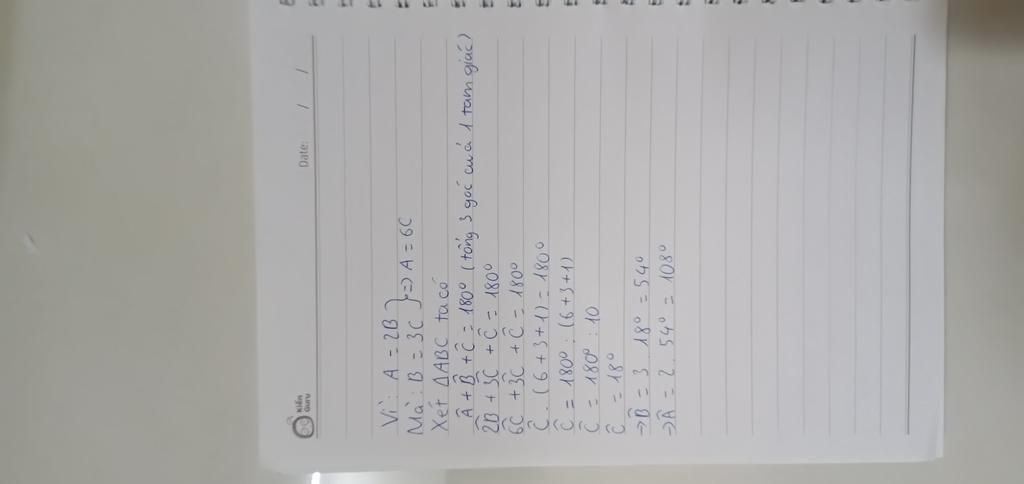 Kiến
Guru
Date: / /
Vì: A = 2B
Mà: B = 3C } => A = 6C
Xét ΔABC ta có
Â + B̂ + Ĉ = 180° (tổng 3 góc của 1 tam giác)
2B̂ + 3Ĉ + Ĉ = 180°
6Ĉ + 3Ĉ + Ĉ = 180°
Ĉ . (6+3+1) = 180°
Ĉ = 180° : (6+3+1)
Ĉ = 180° : 10
Ĉ = 18°
→ B̂ = 3 . 18° = 54°
→ Â = 2 . 54° = 108°